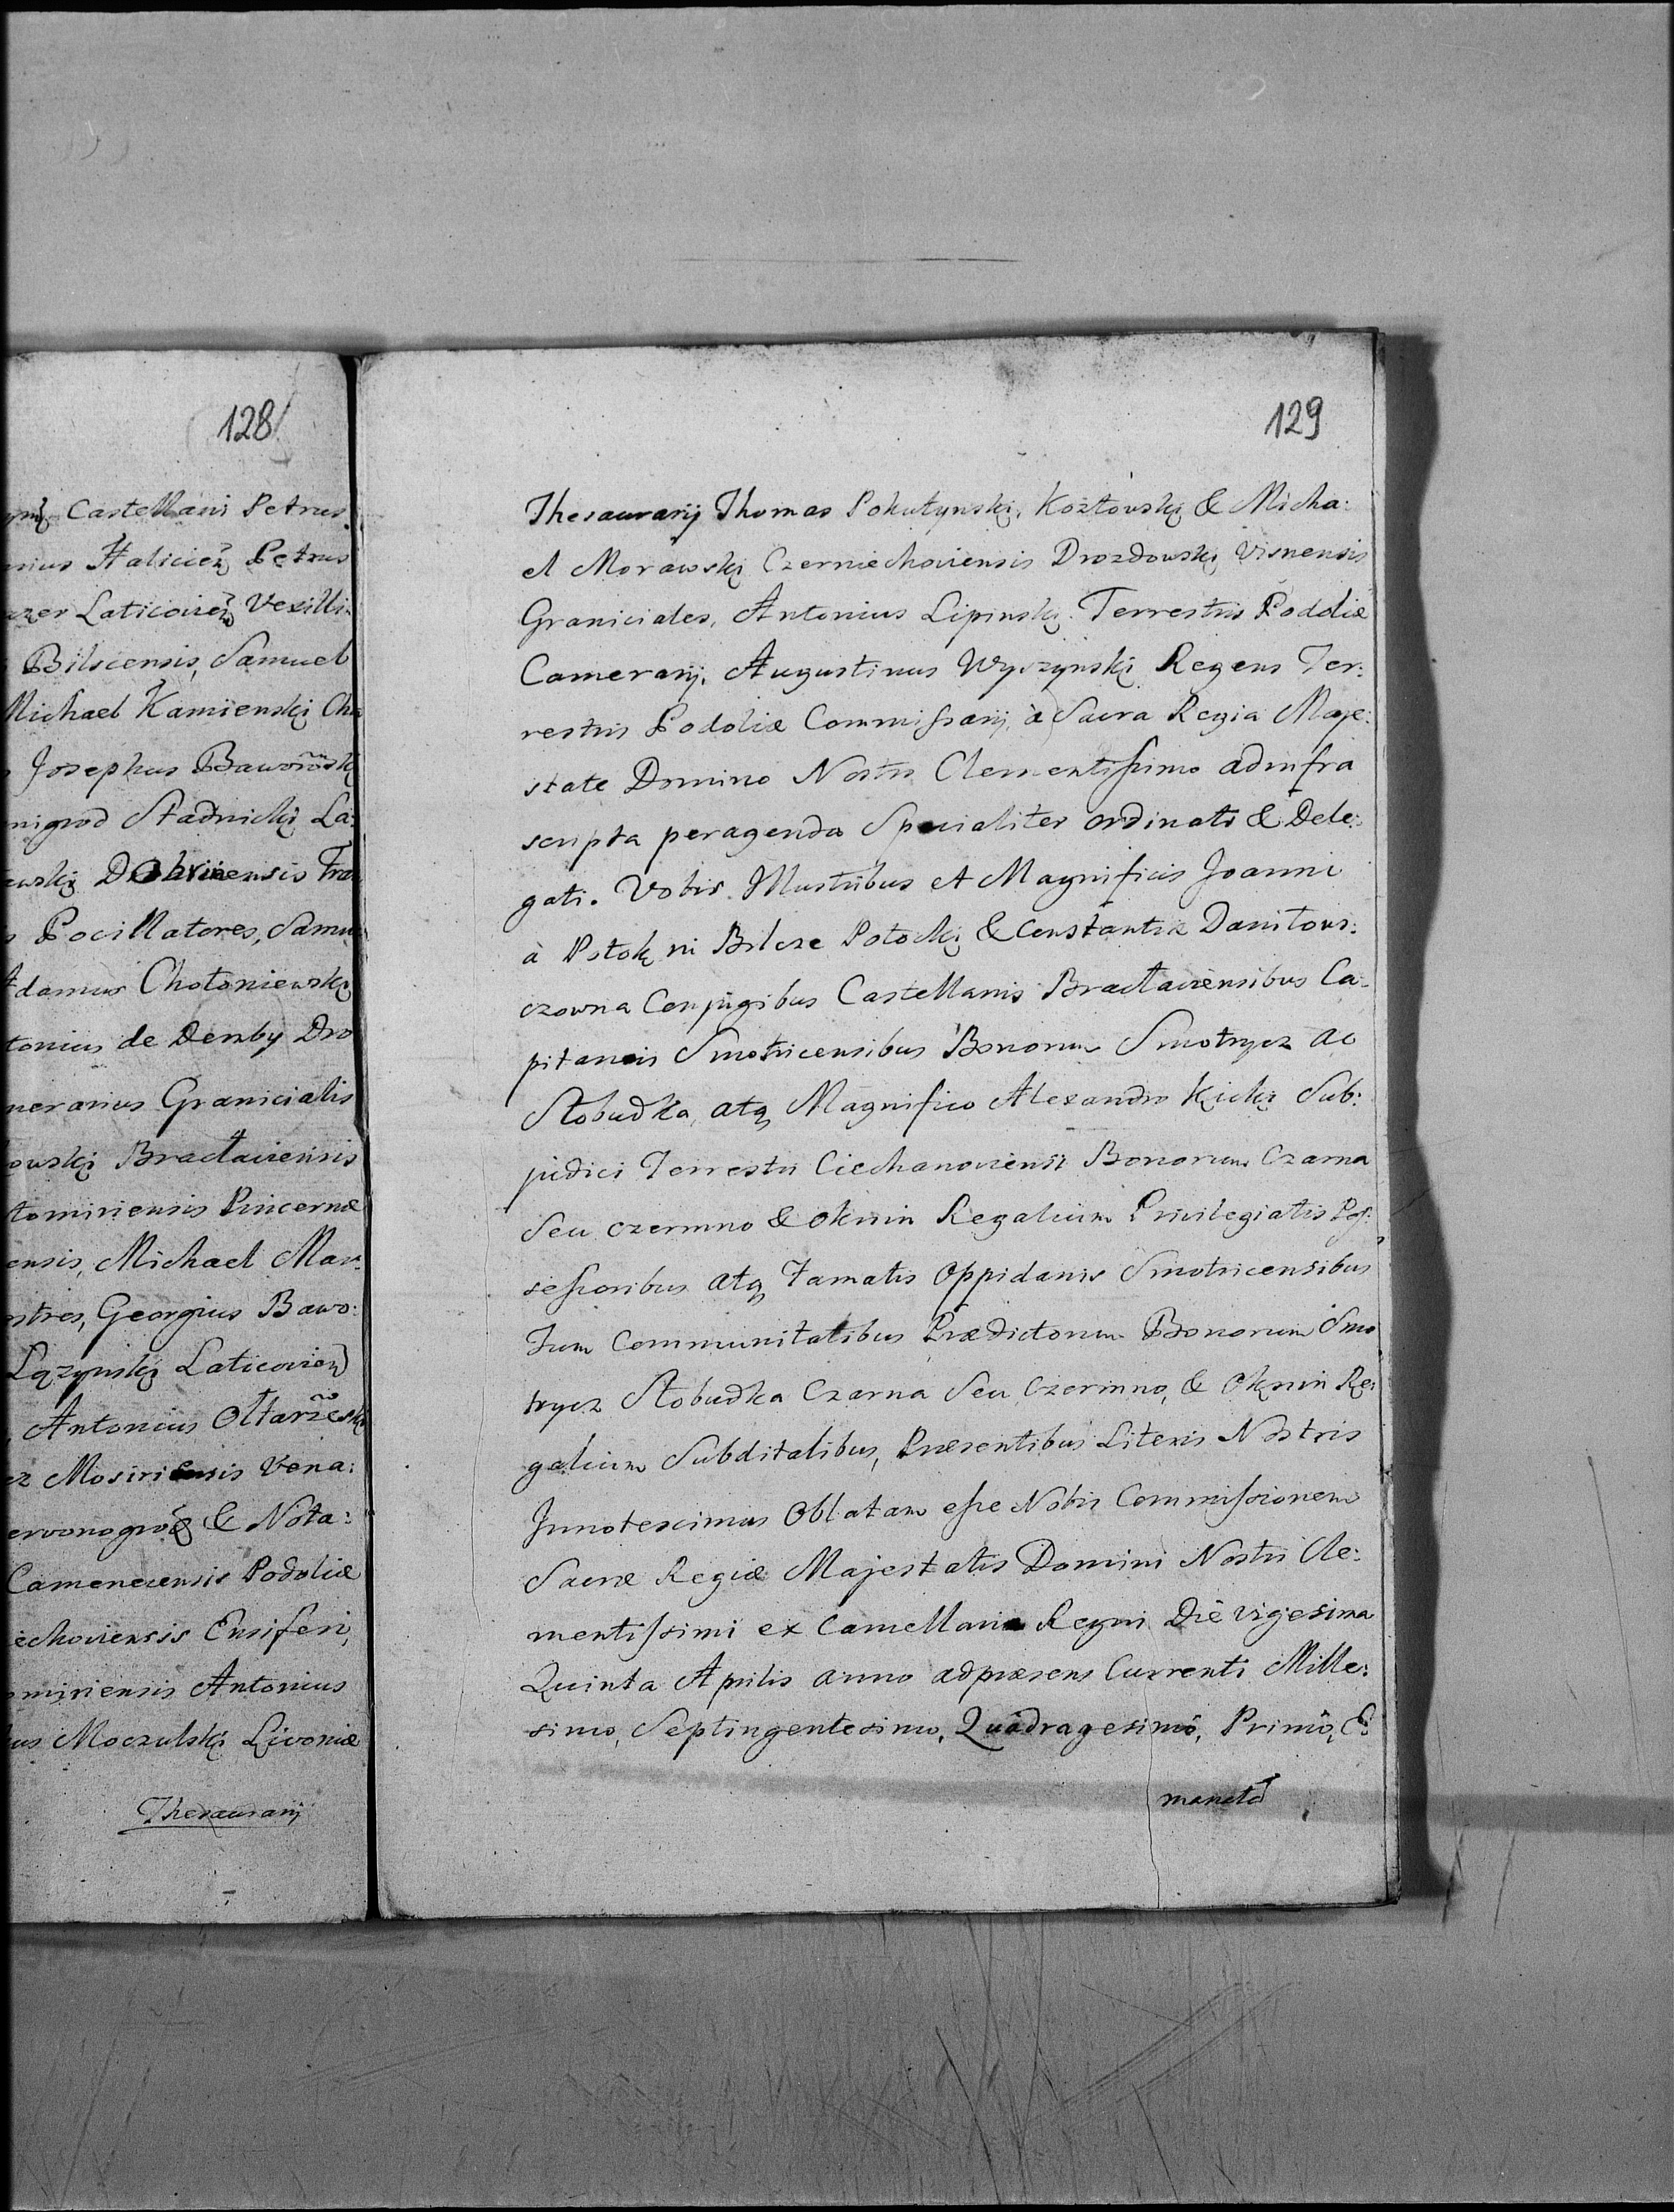 128
Castellani Petrus
nius Halicien Petrus
Laticovien Vexilli:
Bilscensis, Samuel
Michael Kamienski Cho
Josephus Baworowski
nigrod Stadnicki La:
ewski Dobrinensis Fra
Pocillatores, Samu
Adamus Chołoniewski
tonius de Demby Dro
merarius Granicialis
owski Bractaviensis
tomiriensis Pincernæ
ensis, Michael Mar:
stres, Georgius Bawo:
Łązynski Laticovien
Antonius Ołtarzeski
cz Mosiriensis Vena:
ervonogrod & Nota:
Camenecensis Podoliæ
iechoviensis Ensiferi,
omiriensis Antonius
us Moczulski Livoniæ
Thesaurarij
129
Thesaurarij Thomas Pokutynski, Kozłowski & Micha:
el Morawski Czerniechoviensis Drozdowski Visnensis
Graniciales, Antonius Lipinski Terrestris Podoliæ
Camerarij, Augustinus Wyczynski Regens Ter:
restris Podoliæ Commissarij à Sacra Regia Maje:
state Domino Nostro Clementissimo ad infra
scripta peragenda Specialiter ordinati & Dele:
gati. Vobis Illustribus et Magnificis Joanni
à Potok in Bilcze Potocki & Constantia Daniłowi:
czowna Conjugibus Castellanis Bractaviensibus Ca:
pitaneis Smotricensibus Bonorum Smotrycz ac
Słobudka, atq Magnifico Alexandro Kicki Sub:
judici Terrestri Ciechanoviensi Bonorum Czarna
Seu Czermno & Oknin Regalium Privilegiatis Pos:
sessoribus atq Famatis Oppidanis Smotricensibus
Tum Communitatibus Prædictorum Bonorum Smo
trycz Słobudka Czarna Seu Czermno, & Oknin Re:
galium Subditalibus, Præsentibus Literis Nostris
Innotescimus Oblatam esse Nobis Commissionem
Sacræ Regiæ Majestatis Domini Nostri Cle:
mentissimi ex Cancellaria Regni Die vigesima
Quinta Aprilis anno ad præsens Currenti Mille:
simo, Septingentesimo, Quadragesimô, Primô, E:
manatã